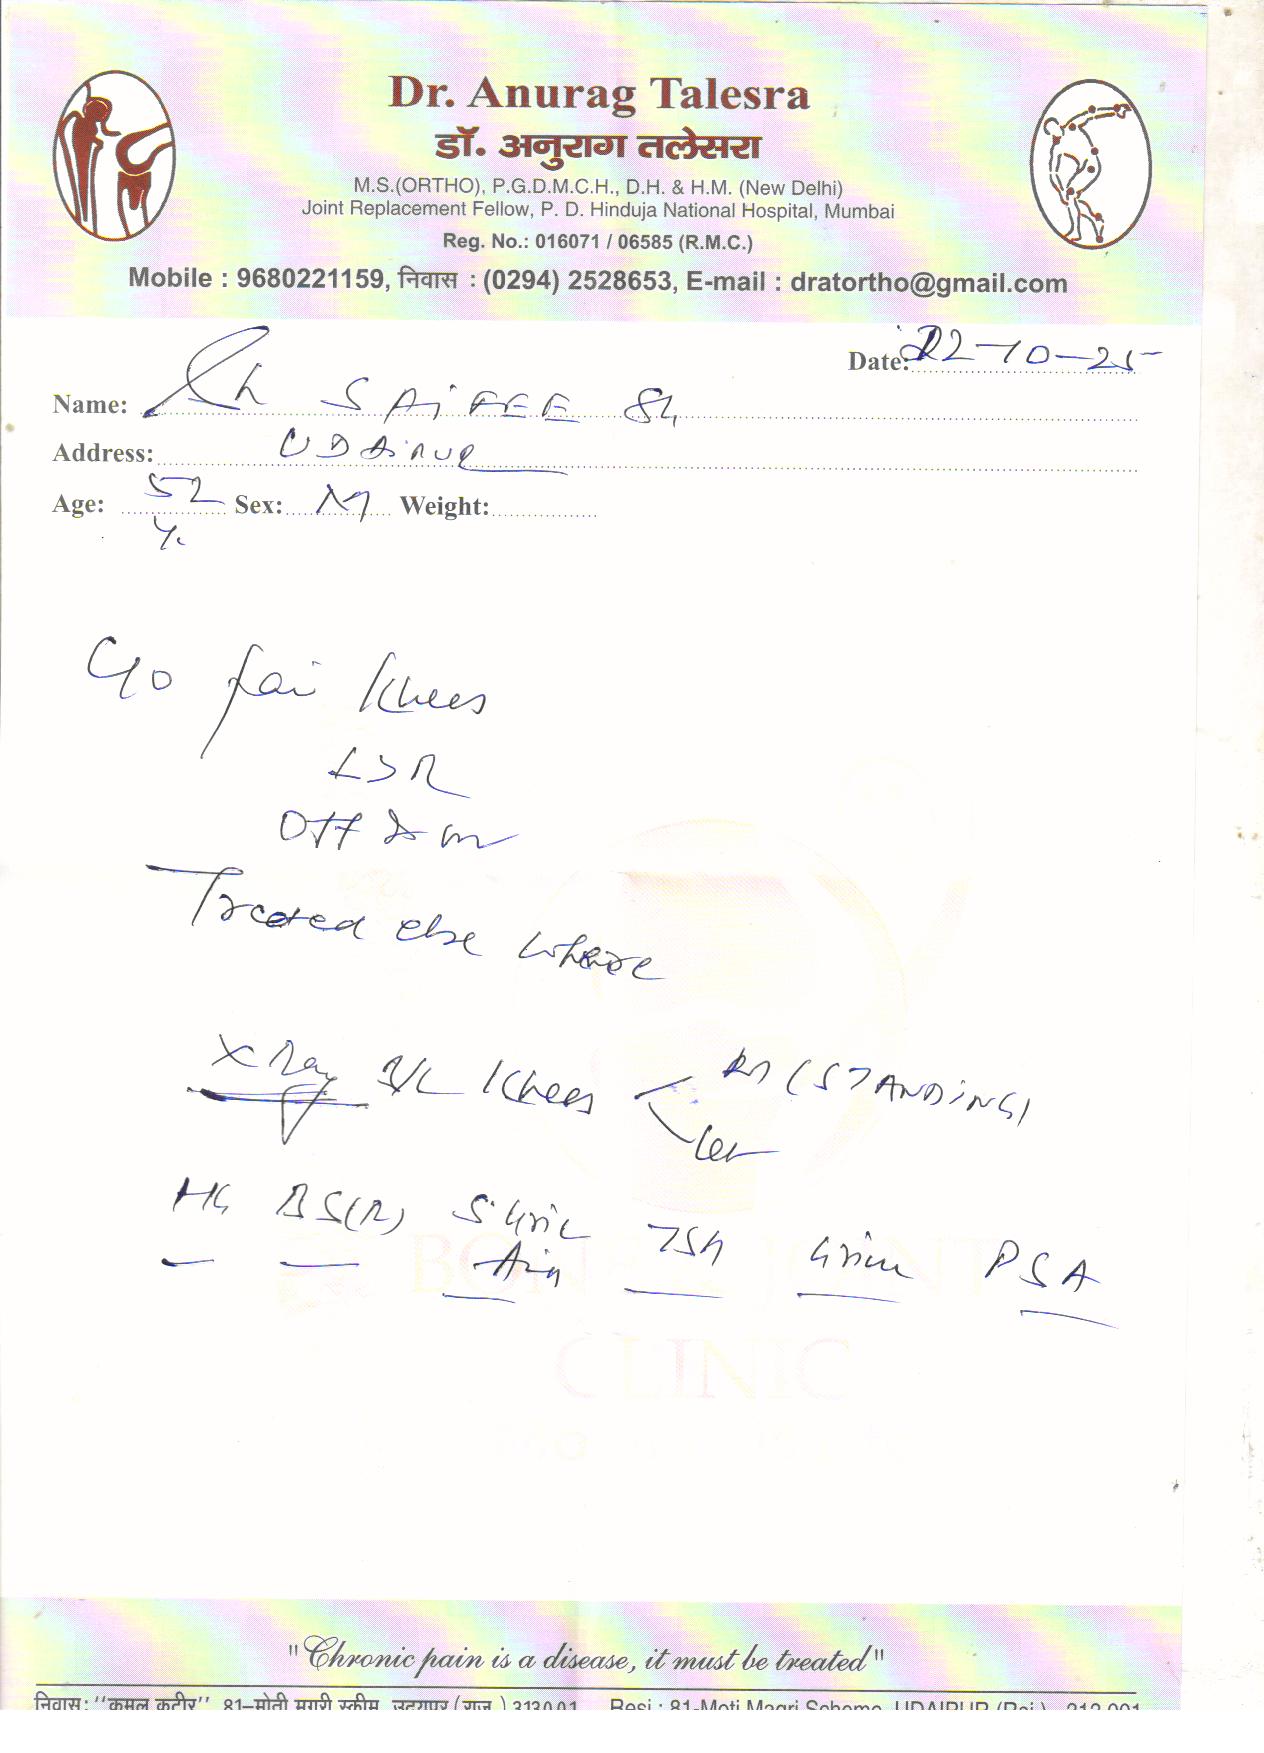 Dr. Anurag Talesra
डॉ. अनुराग तलेसरा
M.S.(ORTHO), P.G.D.M.C.H., D.H. & H.M. (New Delhi)
Joint Replacement Fellow, P. D. Hinduja National Hospital, Mumbai
Reg. No.: 016071 / 06585 (R.M.C.)
Mobile : 9680221159, निवास : (0294) 2528653, E-mail : dratortho@gmail.com
Date: 22-10-25
Name: Sh SAIFEE
Address: UDAIPUR
Age: 52 Y. Sex: M Weight:
C/o Pain Knees
L>R
Off & on
Treated else where
X Ray B/L Knees (STANDING)
BS(R) TSH PSA
BONE JOINT
CLINIC
"Chronic pain is a disease, it must be treated"
निवास: "कमल कुटीर" 81–मोती मगरी स्कीम, उदयपुर (राज.) 313001 Resi.: 81-Moti Magri Scheme, UDAIPUR (Raj.) 313 001